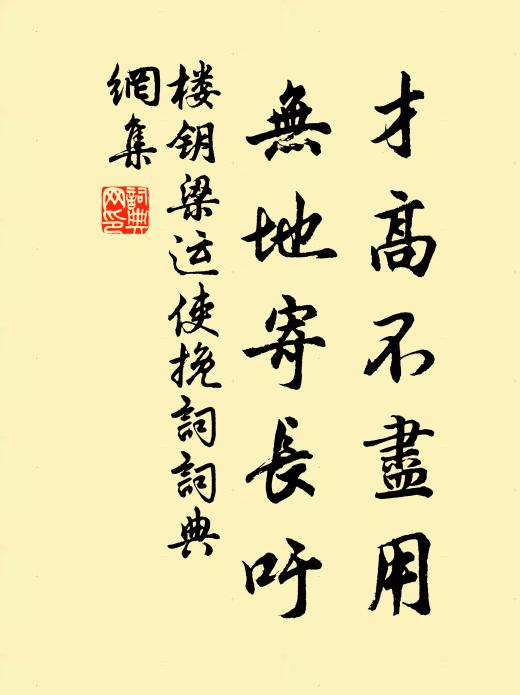 才高不盡用
無地寄長吁
楼钥梁运使挽詞詞典
網集
詞典
网印